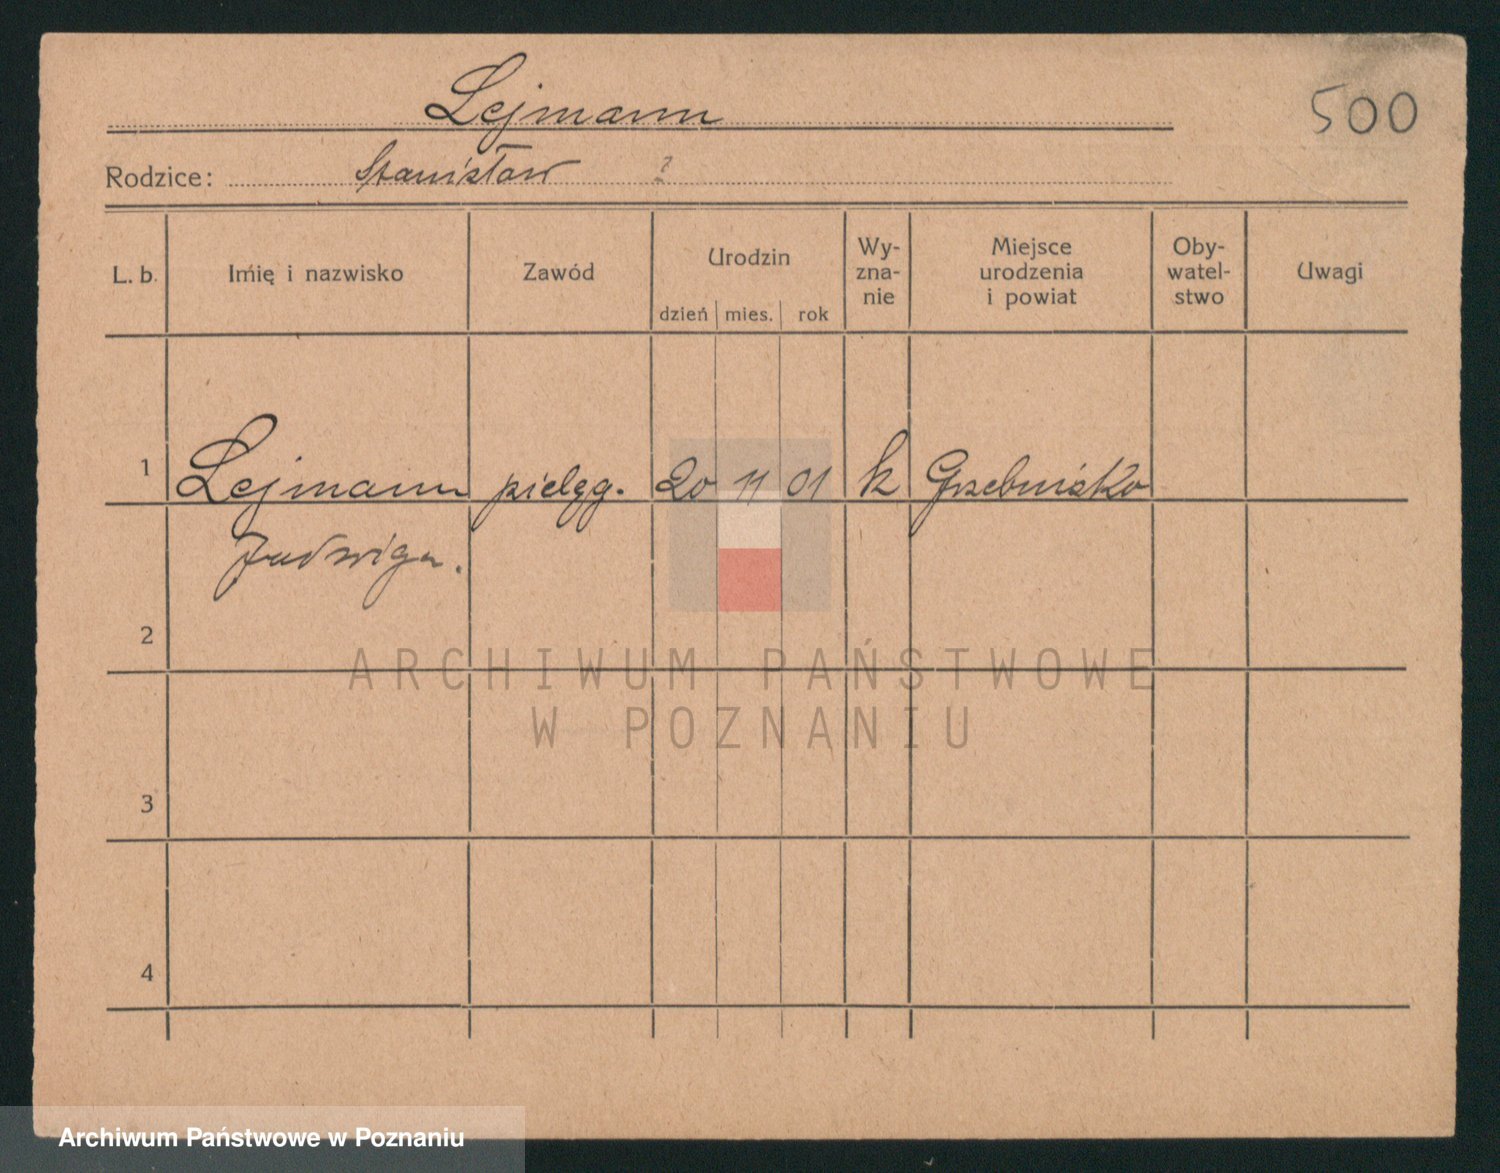 Lejmann
500
Rodzice: Stanisław ?
L. b. Imię i nazwisko Zawód Urodzin Wy-zna-nie Miejsce urodzenia i powiat Oby-watel-stwo Uwagi
dzień mies. rok
1 Lejmann pielęg. 20 11 01 k Grzebinisko
Jadwiga.
2
ARCHIWUM PAŃSTWOWE
W POZNANIU
3
4
Archiwum Państwowe w Poznaniu